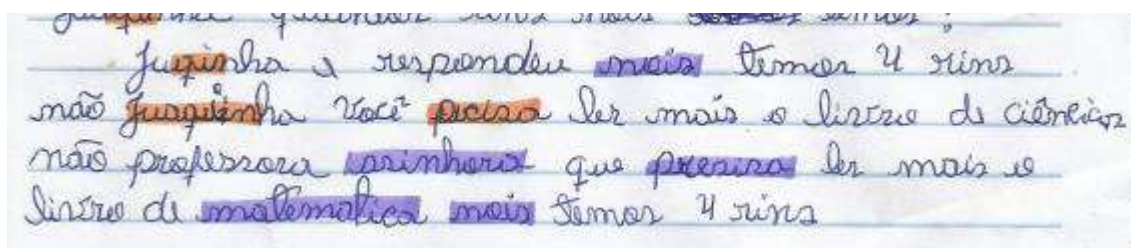 quantos rins nois temos?
Juquinha e respondeu mais temos 4 rins
não Jusquinha você pecisa ler mais o livro de ciências
não professora asinhora que presisa ler mais o
livro de matematica mais temos 4 rins